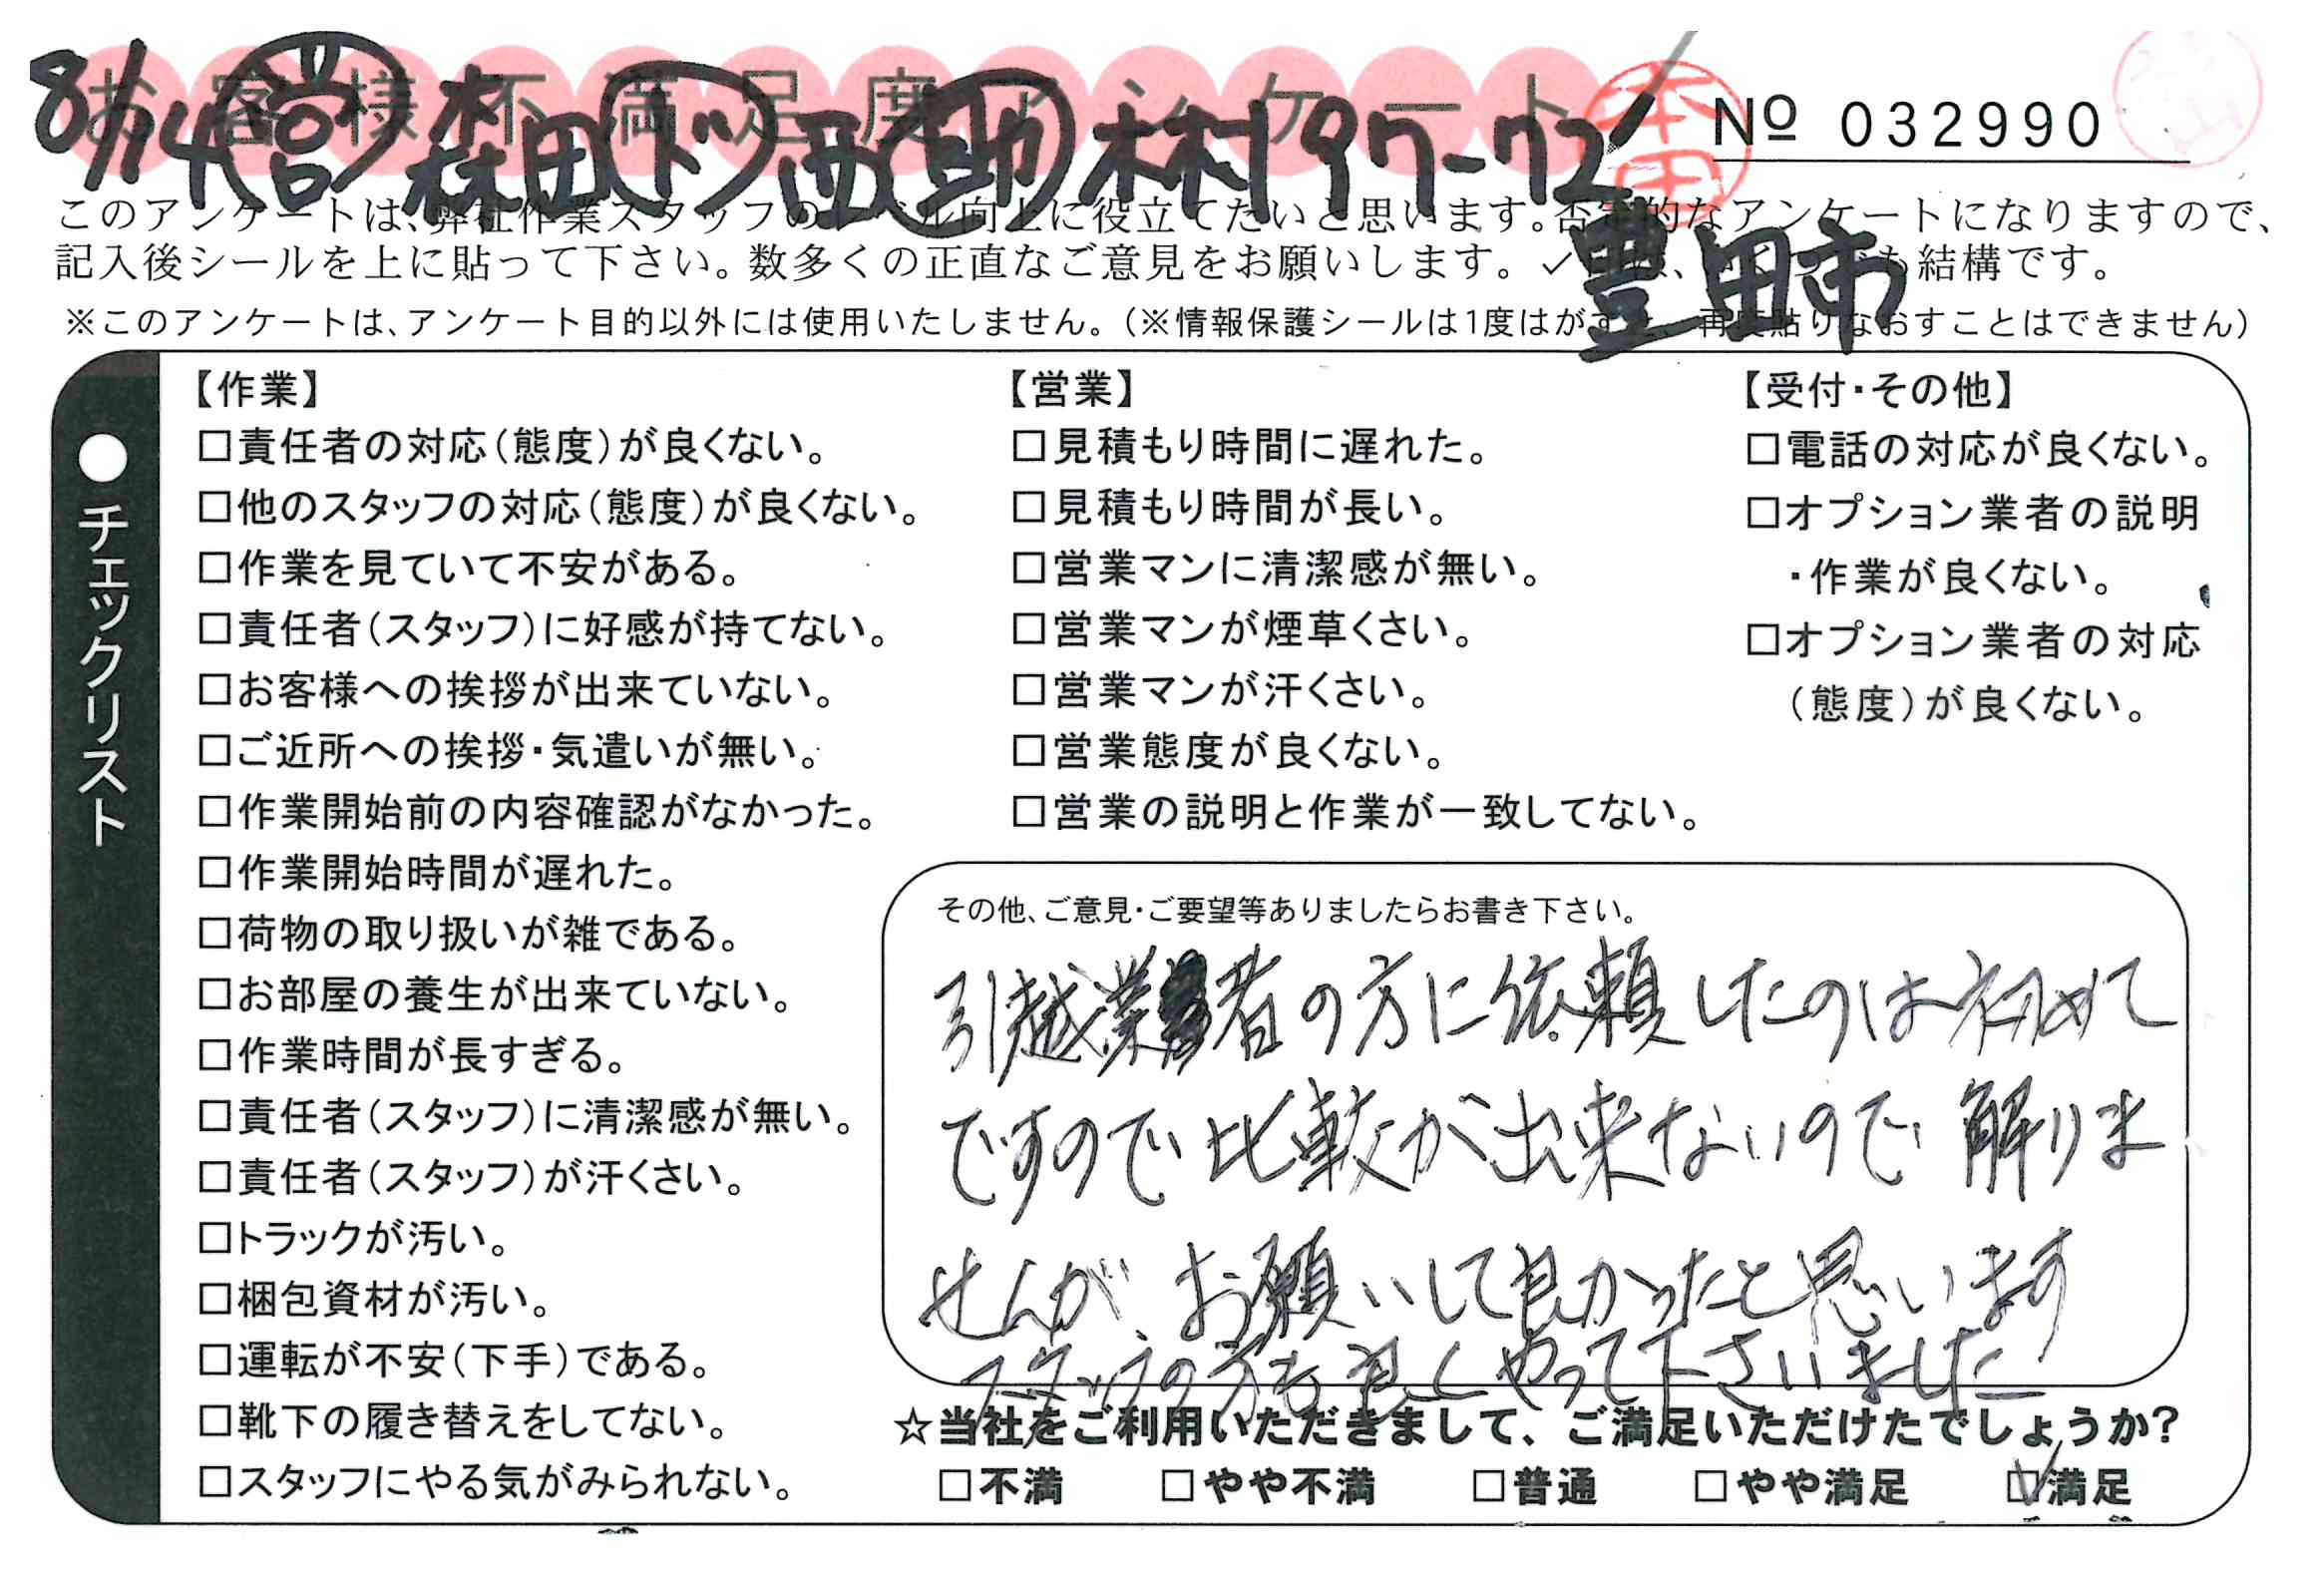 お客様不満足度アンケート
8/14 営 森田 ド 西 助 木村 97-72
本田
No 032990
豊田市
このアンケートは、弊社作業スタッフのレベル向上に役立てたいと思います。否定的なアンケートになりますので、
記入後シールを上に貼って下さい。数多くの正直なご意見をお願いします。✓印は、でも結構です。
※このアンケートは、アンケート目的以外には使用いたしません。(※情報保護シールは1度はがす 再度貼りなおすことはできません)
●チェックリスト
【作業】
□責任者の対応(態度)が良くない。
□他のスタッフの対応(態度)が良くない。
□作業を見ていて不安がある。
□責任者(スタッフ)に好感が持てない。
□お客様への挨拶が出来ていない。
□ご近所への挨拶・気遣いが無い。
□作業開始前の内容確認がなかった。
□作業開始時間が遅れた。
□荷物の取り扱いが雑である。
□お部屋の養生が出来ていない。
□作業時間が長すぎる。
□責任者(スタッフ)に清潔感が無い。
□責任者(スタッフ)が汗くさい。
□トラックが汚い。
□梱包資材が汚い。
□運転が不安(下手)である。
□靴下の履き替えをしてない。
□スタッフにやる気がみられない。
【営業】
□見積もり時間に遅れた。
□見積もり時間が長い。
□営業マンに清潔感が無い。
□営業マンが煙草くさい。
□営業マンが汗くさい。
□営業態度が良くない。
□営業の説明と作業が一致してない。
【受付・その他】
□電話の対応が良くない。
□オプション業者の説明
・作業が良くない。
□オプション業者の対応
(態度)が良くない。
その他、ご意見・ご要望等ありましたらお書き下さい。
引越業者の方に依頼したのは初めて
ですので比較が出来ないので解りま
せんがお願いして良かったと思います
スタッフの方も良くやって下さいました
☆当社をご利用いただきまして、ご満足いただけたでしょうか?
□不満 □やや不満 □普通 □やや満足 ☑満足